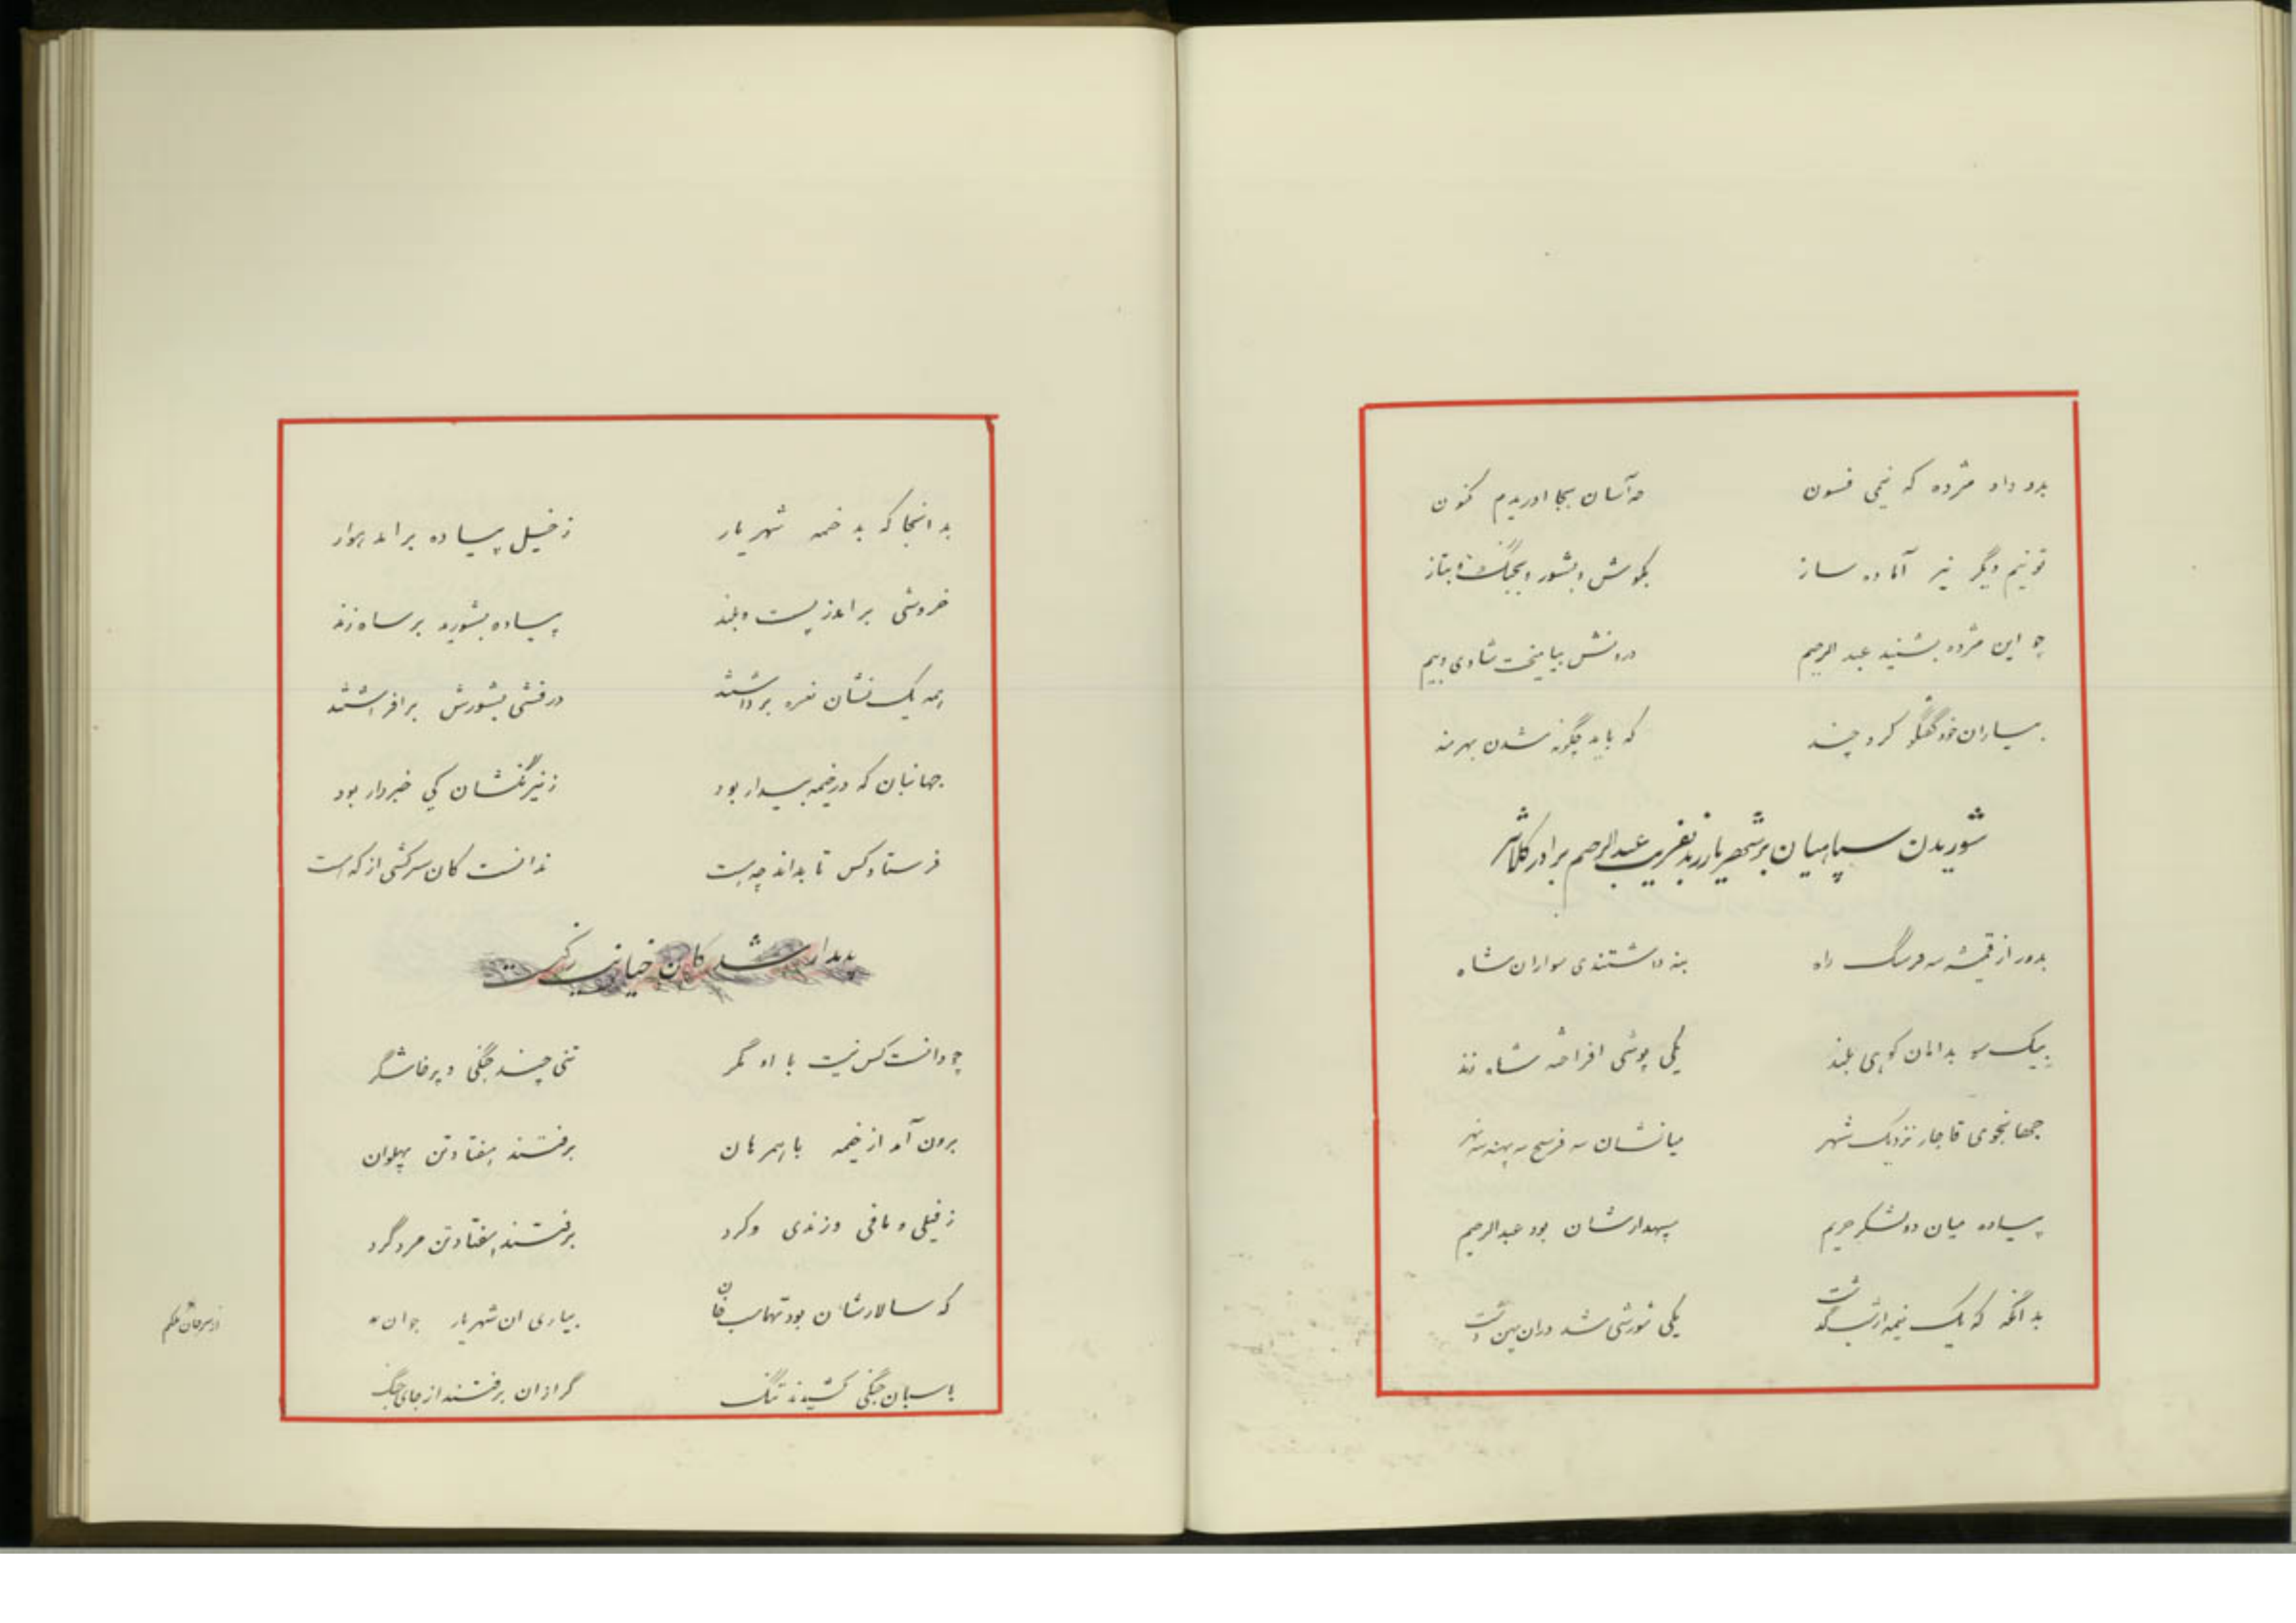 بدو داد مژده که نیمی فسون چه آسان بجا اوریدم کنون
تو نیم دیگر نیز آماده ساز بکوش و بشور و بجنگ و بتاز
چو این مژده بشنید عبد الرحیم درونش بیامیخت شادی و بیم
بیاران خود گفتگو کرد چند که باید چگونه شدن بهرمند
شوریدن سپاهیان بر شهریار زند بفریب عبدالرحیم برادر کلانتر
بدور از قمیشه سه فرسنگ راه بنه داشتندی سواران شاه
بیک سو بدامان کوهی بلند یکی پوشی افراخته شاه زند
جهانجوی قاجار نزدیک شهر میانشان سه فرسخ
پیاده میان دو لشکر حریم سپهدارشان بود عبدالرحیم
بدانگه که یک نیمه از شب گذشت یکی شورشی شد دران پهن دشت
بدانجا که بد خیمه شهریار ز خیل پیاده برامد
خروشی برامد ز پست و بلند پیاده بشورید بر شاه زند
همه یک نشان نعره برداشتند درفشی بشورش برافراشتند
جهانبان که در خیمه بیدار بود ز نیرنگشان کی خبردار بود
فرستاد کس تا بداند چه هست ندانست کان سرکشی از که است
پدیدار شد کان خیانت ز کیست
چو دانست کس نیست با او مگر تنی چند جنگی و پرخاشگر
برون آمد از خیمه با همرهان برفتند هفتاد تن پهلوان
ز فیلی و مافی و زندی و کرد برفتند هفتاد تن مرد گرد
که سالارشان بود تهماسب خان بیاری ان شهریار جوان
باسبان جنگی کشیدند تنگ گرازان برفتند از جای جنگ